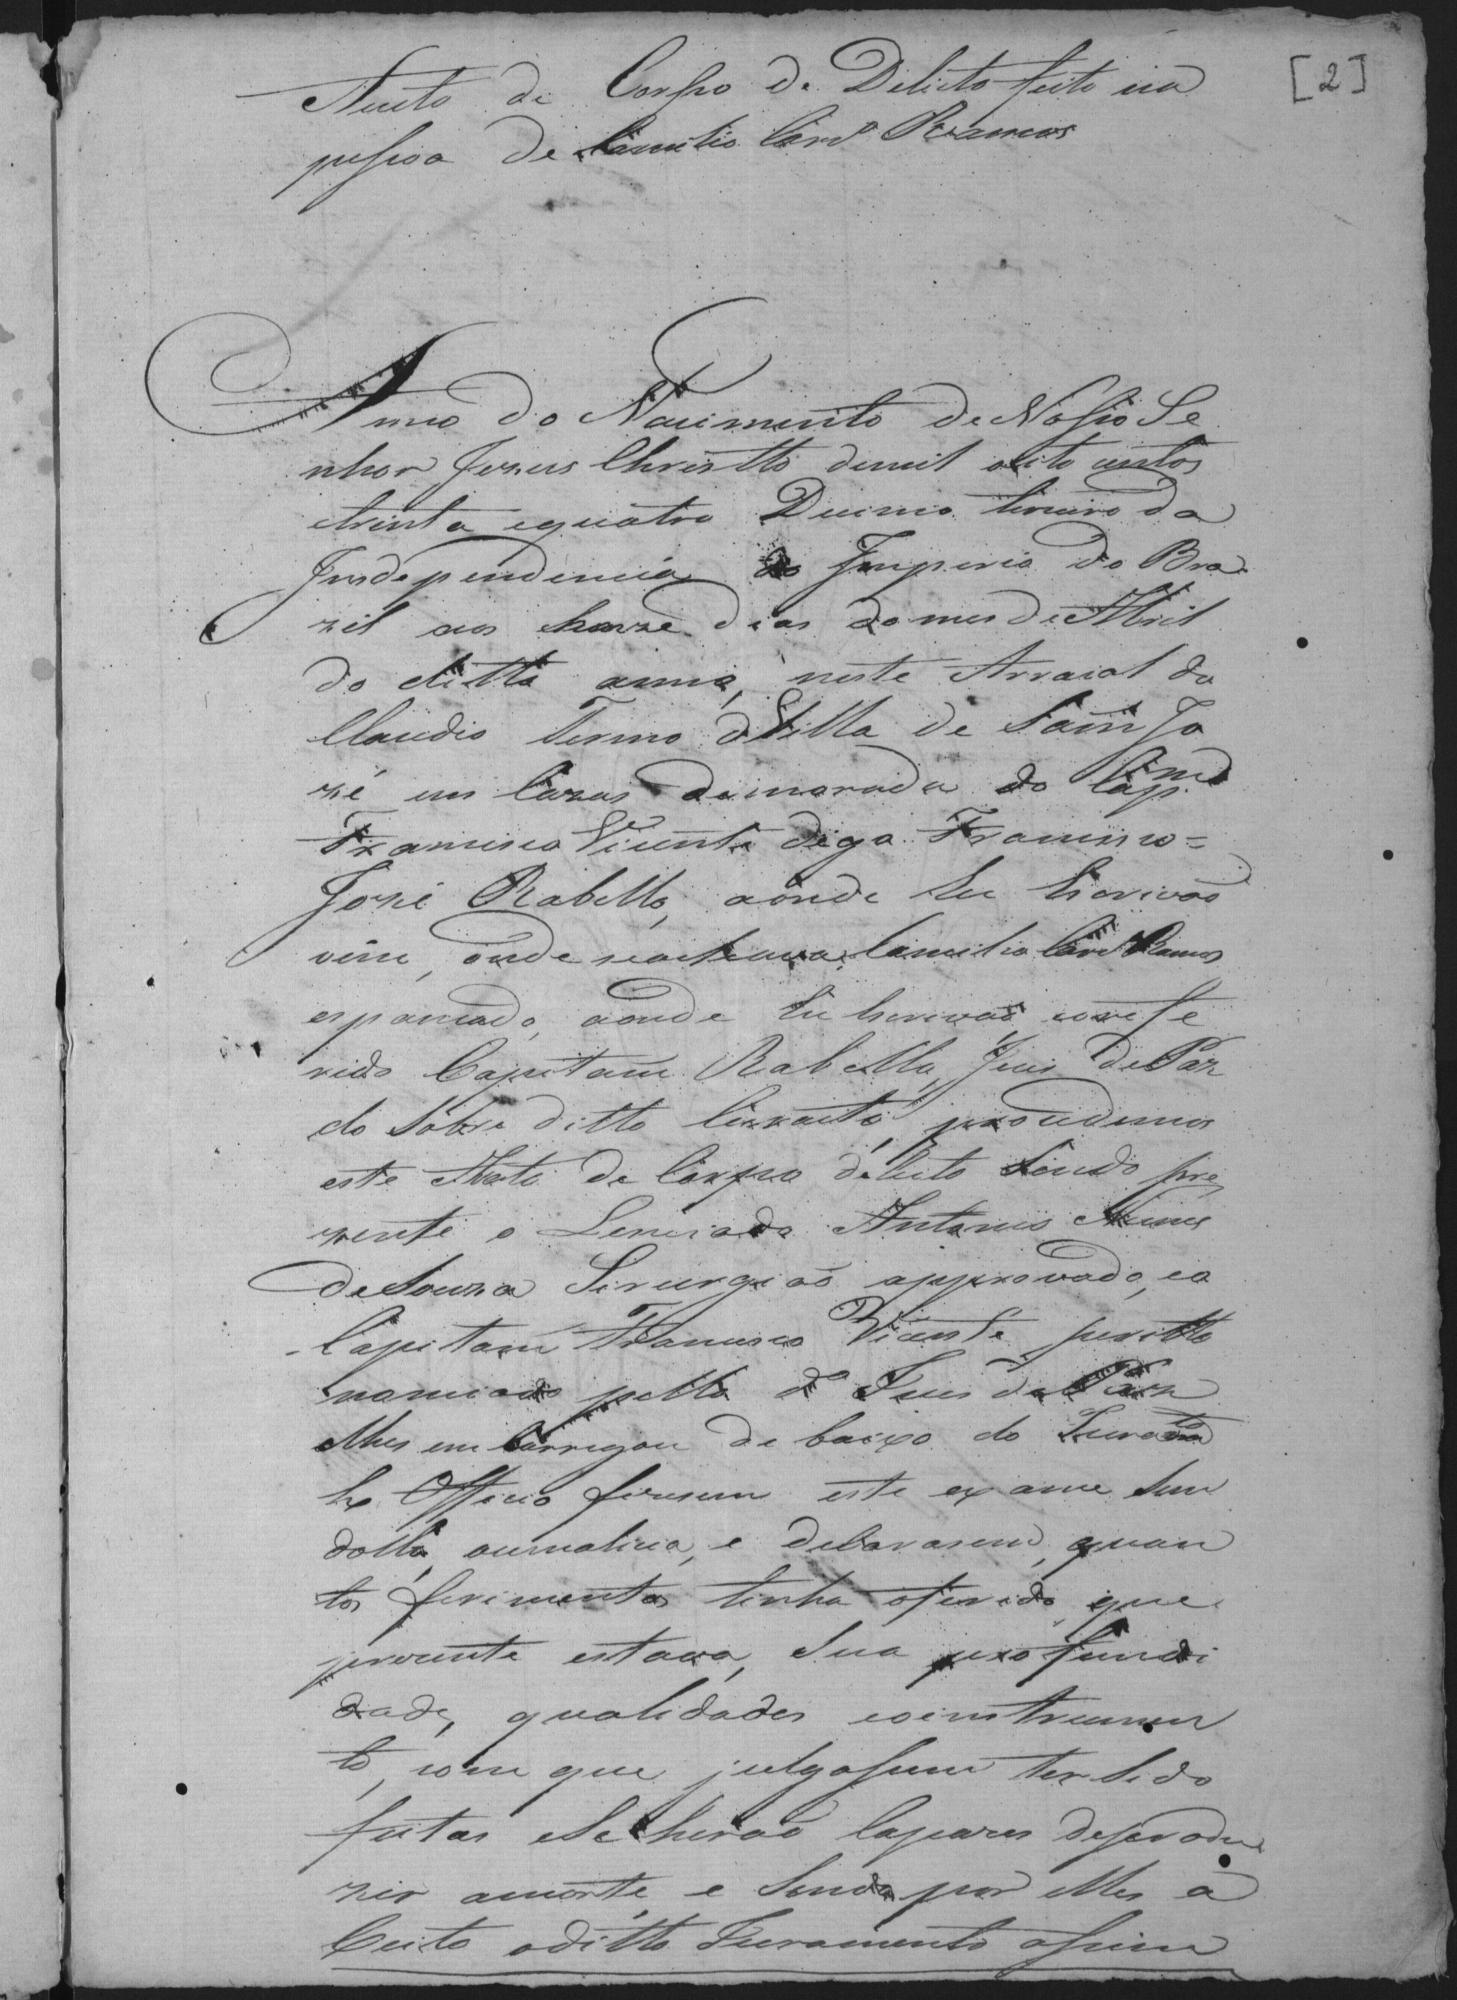 [2]
Auto de Corpo de Delicto feito na
pessoa de Camilio Card.º Ramos
Anno do Nacimento de Nosso Se
nhor Jezus Christto de mil oito centos
etrinta equatro Decimo terceiro da
Independencia do Imperio do Bra
zil aos honze dias do mes de Abril
do ditto anno, neste Arraial do
Claudio Termo da Villa de Sam Jo
zé em Cazas de morada do Cap.m
Francisco Vicente digo Francisco=
José Rabello, aonde Eu Escrivão
vim, onde se achava Camilio Card.º Ramos
espancado, aonde Eu Escrivão com o refe
rido Capitam Rabello, Juis de Paz
do Sobre ditto Curato, procedemos
este Auto de Corpo delicto Sendo pre
zente o Lecenciado Antonio Nunes
de Souza Sirurgião approvado, e o
Capitam Francisco Vicente peritto
nomiado pello d.º Juis de Paz
elhes emcarregou de baixo do Juram.to
de Officio fizesem este exame Sem
dollo, ou malicia, e declarasem, quan
tos ferimentos tinha oferido que
prezente estava, Sua profundi
dade, qualidades eoinstrumen
to, com que julgassem ter Sido
feitas eSe herão Capazes de produ
zir amorte, e Sendo por elles a
Ceito oditto Juramento assim